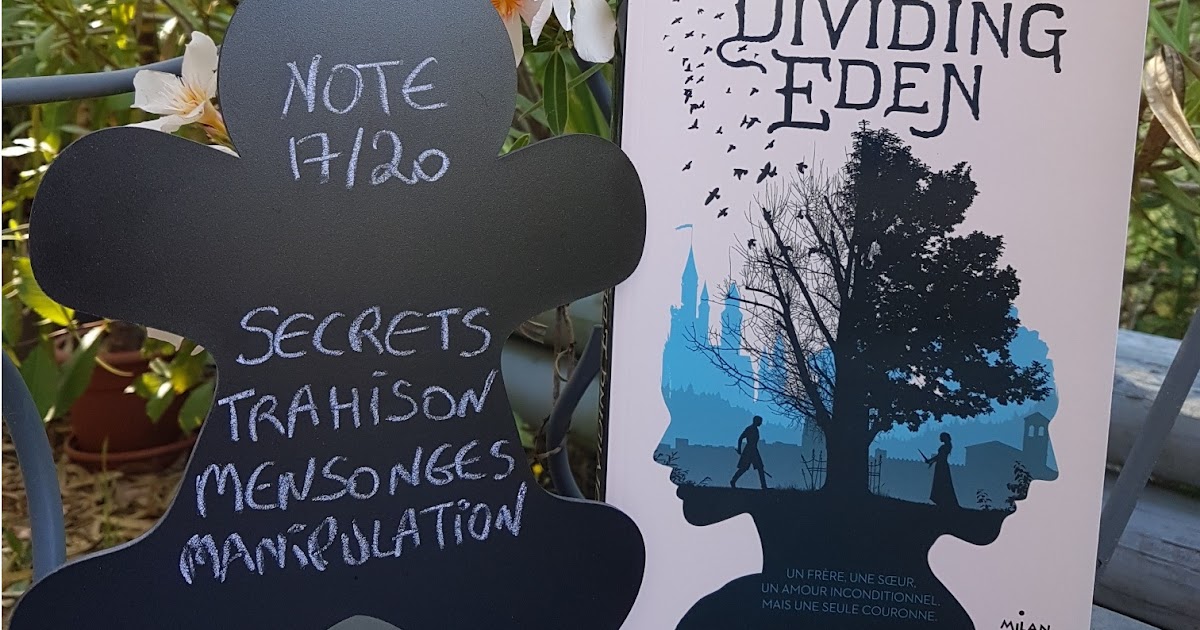 NOTE
17/20
SECRETS
TRAHISON
MENSONGES
MANIPULATION
DIVIDING
EDEN
UN FRÈRE, UNE SŒUR,
UN AMOUR INCONDITIONNEL.
MAIS UNE SEULE COURONNE.
MILAN